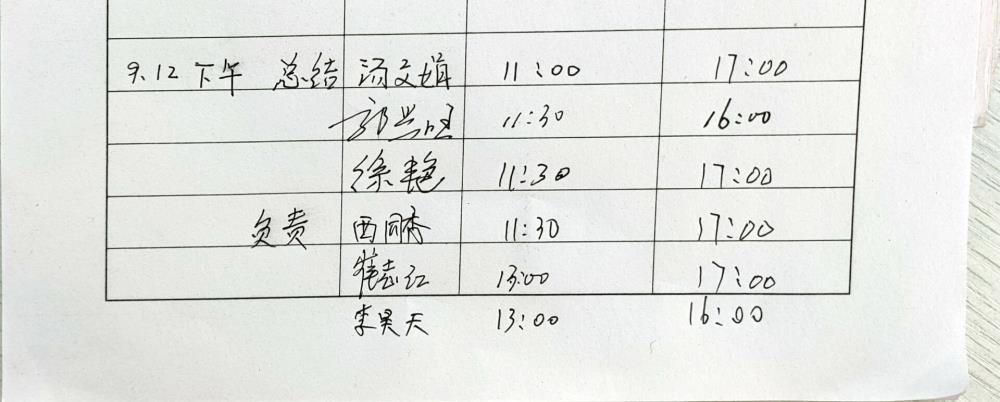 9.12 下午 总结 汤文娟 11:00 17:00
郭兴旺 11:30 16:00
徐艳 11:30 17:00
负责 西同秀 11:30 17:00
崔志红 13:00 17:00
李昊天 13:00 16:00